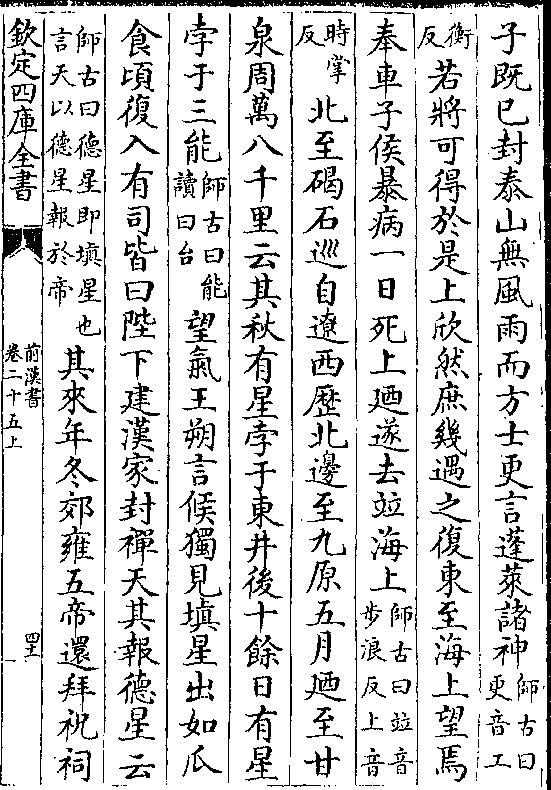 子既已封泰山無風雨而方士更言蓬萊諸神師古曰更音工
衡反若將可得於是上欣然庶幾遇之復東至海上望焉
奉車子侯暴病一日死上廼遂去竝海上師古曰竝音步浪反上音
時掌反北至碣石巡自遼西歷北邊至九原五月廼至甘
泉周萬八千里云其秋有星孛于東井後十餘日有星
孛于三能師古曰能讀曰台望氣王朔言候獨見塡星出如瓜
食頃復入有司皆曰陛下建漢家封禪天其報德星云
師古曰德星即塡星也言天以德星報於帝其來年冬郊雍五帝還拜祝祠
欽定四庫全書
前漢書
卷二十五上